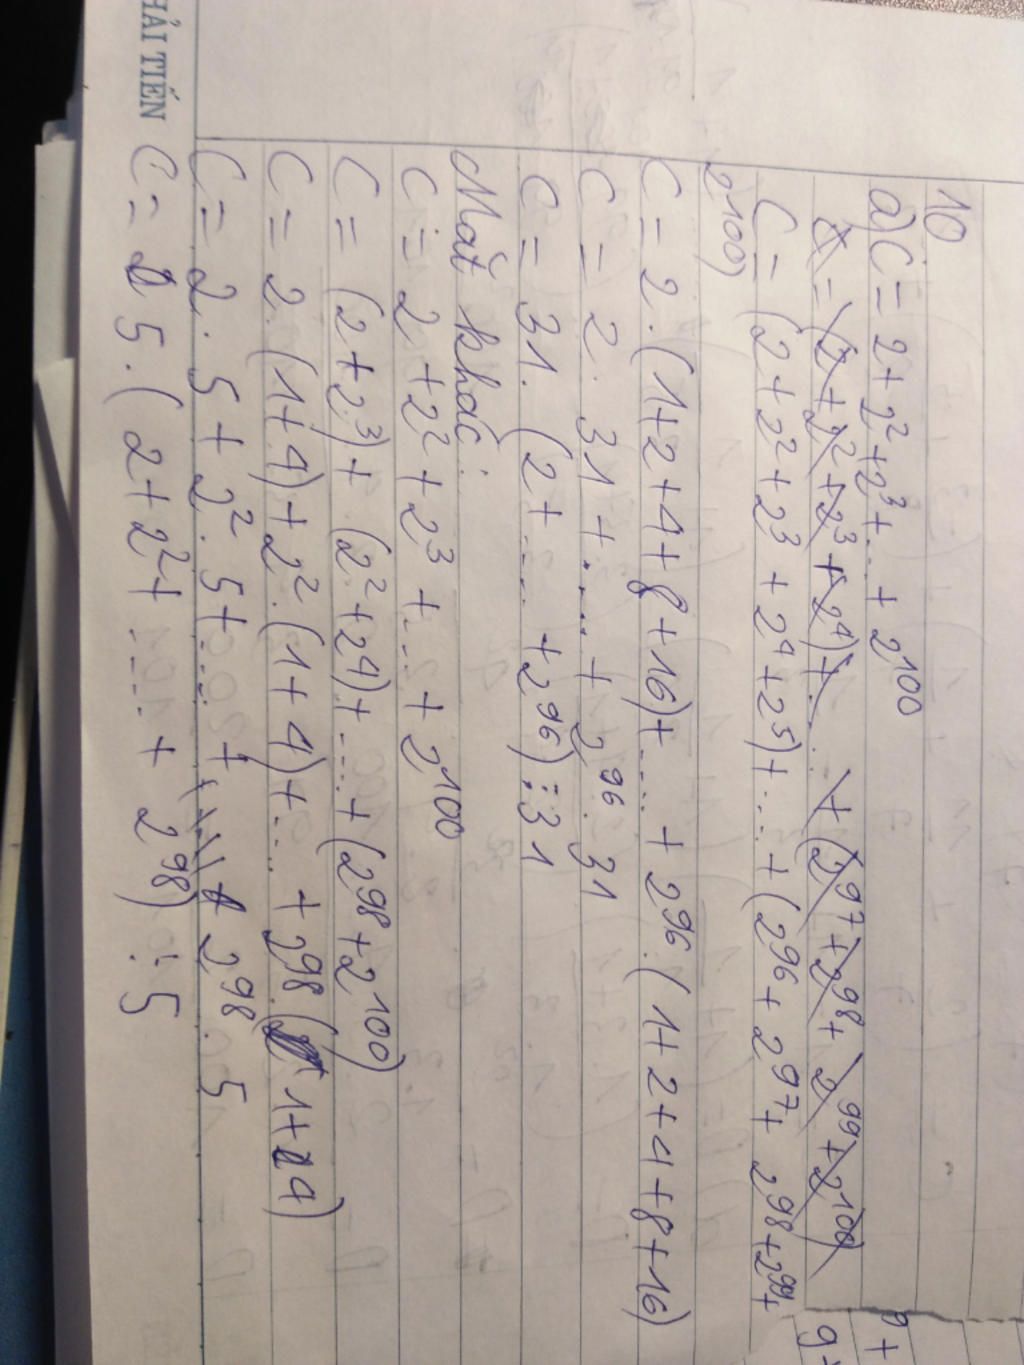 10
a) C = 2 + 2² + 2³ + ... + 2¹⁰⁰
C = (2 + 2² + 2³ + 2⁴) + .... + (2⁹⁷ + 2⁹⁸ + 2⁹⁹ + 2¹⁰⁰)
C = (2 + 2² + 2³ + 2⁴ + 2⁵) + .... + (2⁹⁶ + 2⁹⁷ + 2⁹⁸ + 2⁹⁹ +
2¹⁰⁰)
C = 2 . (1 + 2 + 4 + 8 + 16) + .... + 2⁹⁶ . (1 + 2 + 4 + 8 + 16)
C = 2 . 31 + .... + 2⁹⁶ . 31
C = 31 . (2 + .... + 2⁹⁶) ⋮ 31
Mặt khác :
C = 2 + 2² + 2³ + ... + 2¹⁰⁰
C = (2 + 2³) + (2² + 2⁴) + .... + (2⁹⁸ + 2¹⁰⁰)
C = 2 . (1 + 4) + 2² . (1 + 4) + .... + 2⁹⁸ . (1 + 4)
C = 2 . 5 + 2² . 5 + .... + 2⁹⁸ . 5
C = 5 . (2 + 2² + .... + 2⁹⁸) ⋮ 5
HẢI TIẾN